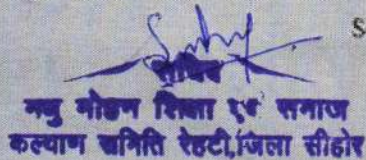 S
सचिव
मधु मोहन शिक्षा एवं समाज
कल्याण समिति रेहटी,जिला सीहोर